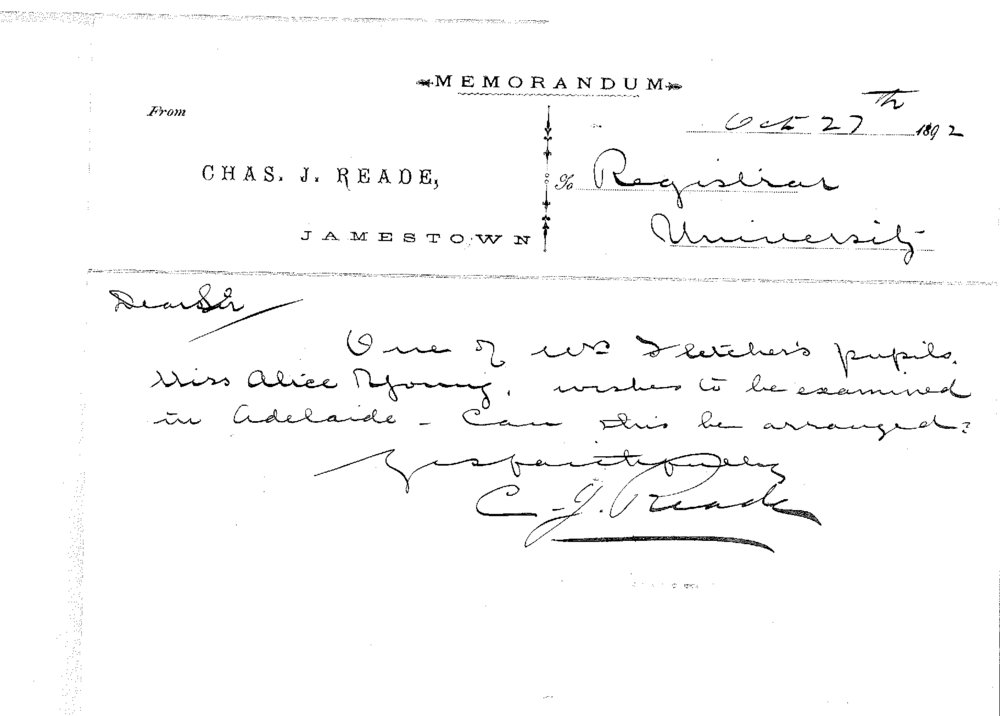 MEMORANDUM
From
Oct 27th 1892
CHAS. J. READE,
To Registrar
JAMESTOWN
University
Dear Sir
One of Mr Fletcher's pupils,
Miss Alice Young, wishes to be examined
in Adelaide - Can this be arranged?
Yrs faithfully
C. J. Reade